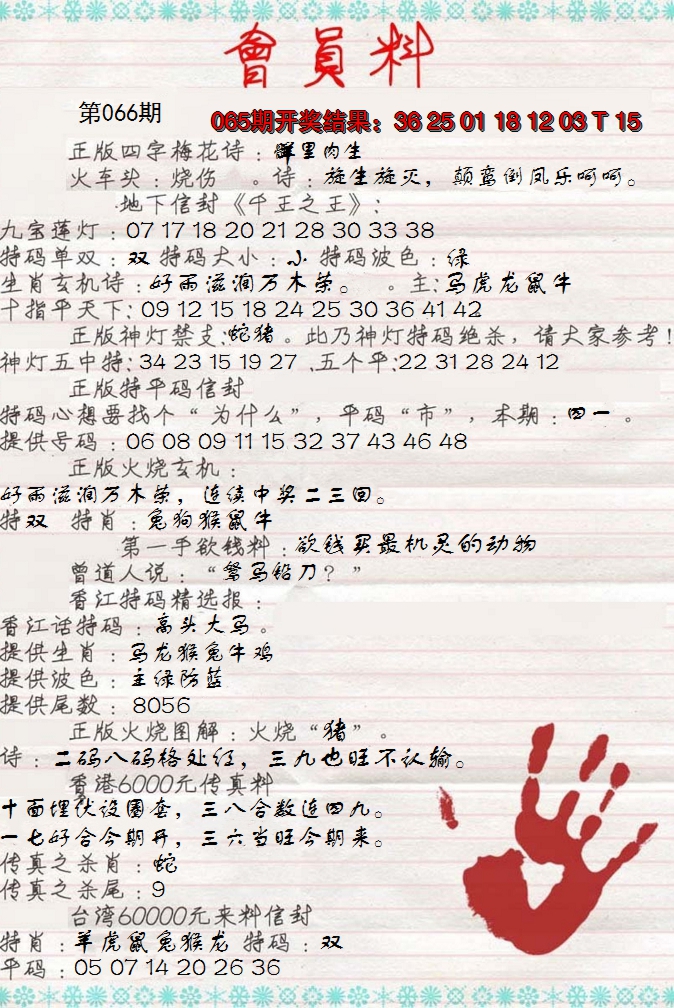 會員料
第066期
065期开奖结果：36 25 01 18 12 03 T 15
正版四字梅花诗：群里肉生
火车头：烧伤 。诗：旋生旋灭，颠鸾倒凤乐呵呵。
地下信封《千王之王》：
九宝莲灯：07 17 18 20 21 28 30 33 38
特码单双：双 特码大小：小 特码波色：绿
生肖玄机诗：好雨滋润万木荣。 。主：马虎龙鼠牛
十指平天下：09 12 15 18 24 25 30 36 41 42
正版神灯禁支:蛇猪。此乃神灯特码绝杀，请大家参考！
神灯五中特：34 23 15 19 27 、五个平：22 31 28 24 12
正版特平码信封
特码心想要找个“为什么”，平码“市”，本期：四一 。
提供号码：06 08 09 11 15 32 37 43 46 48
正版火烧玄机：
好雨滋润万木荣，连续中奖二三回。
特双 特肖：兔狗猴鼠牛
第一手欲钱料：欲钱买最机灵的动物
曾道人说：“驽马铅刀？”
香江特码精选报：
香江话特码：高头大马。
提供生肖：马龙猴兔牛鸡
提供波色：主绿防蓝
提供尾数：8056
正版火烧图解：火烧“猪”。
诗：二码八码格处红，三九也旺不认输。
香港6000元传真料
十面埋伏设圈套，三八合数连四九。
一七好合今期开，三六当旺今期来。
传真之杀肖：蛇
传真之杀尾：9
台湾60000元来料信封
特肖：羊虎鼠兔猴龙 特码：双
平码：05 07 14 20 26 36